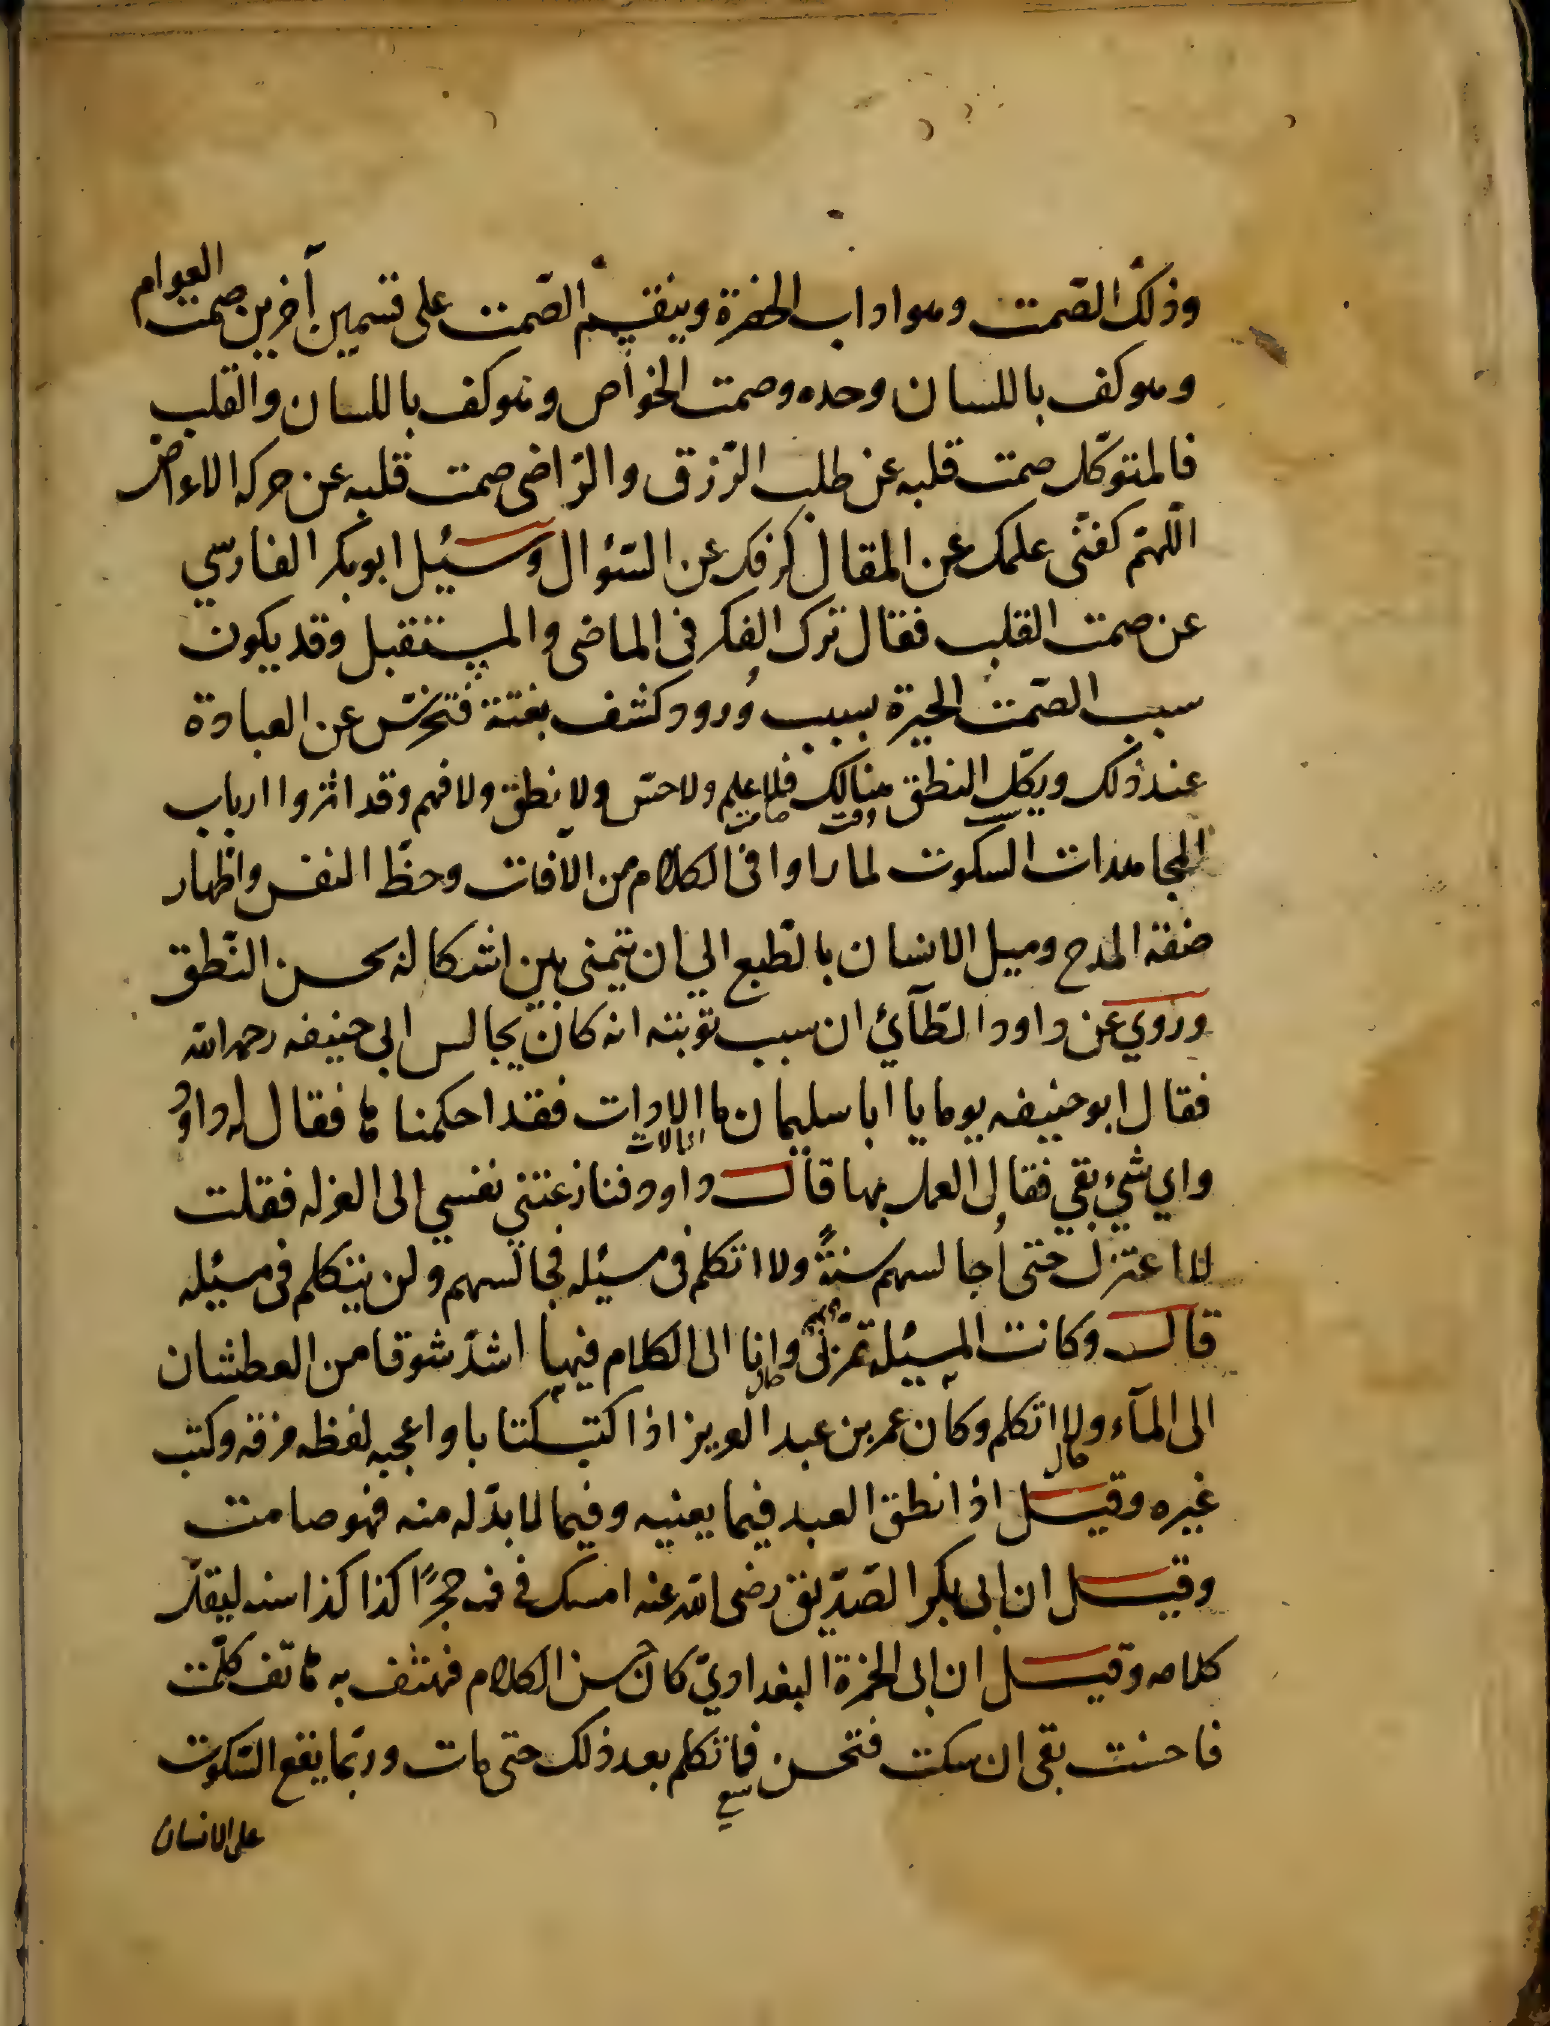 وذلك الصّمت وهو اداب الحضرة وينقسم الصّمت على قسمين آخرين صمت العوام
وهو كف باللسان وحده وصمت الخواص وهو كف باللسان والقلب
فالمتوكّل صمت قلبه عن طلب الرّزق والرّاضى صمت قلبه عن حركه الاعراض
اللّهمّ كفنى علمك عن المقال كرمك عن السّؤال وسئيل ابو بكر الفارسي
عن صمت القلب فقال ترك الفكر فى الماضى والمستقبل وقد يكون
سبب الصّمت الحيرة بسبب وُرود كشف بغتة فتخرّس عن العبادة
عند ذلك ويكلّ النطق هنالك فلا علم ولا حسّ ولا نطق ولا فهم وقد اثروا ارباب
المجاهدات السكوت لما راوا فى الكلام من الآفات وحظّ النفس واظهار
صفة المدح وميل الانسان بالطّبع الي ان يتميّز بين اشكاله بحسن النّطق
وروي عن داود الطّآئ ان سبب توبته انه كان يجالس ابى حنيفه رحمه الله
فقال ابو حنيفه يوما يا ابا سليمان ما الادات فقد احكمنا ها فقال له داود
واي شيء بقي فقال العمل بها قال داود فنازعتني نفسي الى العزله فقلت
لا اعتزل حتى اُجالسهم سنةً ولا اتكلم فى مسئله فجالسهم ولن يتكلم فى مسئله
قال وكانت المسئله تمرّ بى وانا الى الكلام فيها اشدّ شوقا من العطشان
الى المآء ولا اتكلم وكان عمر بن عبد العزيز اذا كتب كتابا واعجبه لفظه مزقه وكتب
غيره وقيل اذا نطق العبد فيما يعنيه وفيما لا بدّ له منه فهو صامت
وقيل ان ابى بكر الصّدّيق رضى الله عنه امسك في فمه حجرًا كذا كذا سنه ليقلّ
كلامه وقيل ان ابى الحمزة البغداديّ كان حسن الكلام فهتف به هاتف كلّمت
فاحسنت بقى ان سكت فتحسن فما تكلم بعد ذلك حتى مات وربّما يقع السّكوت
على الانسان